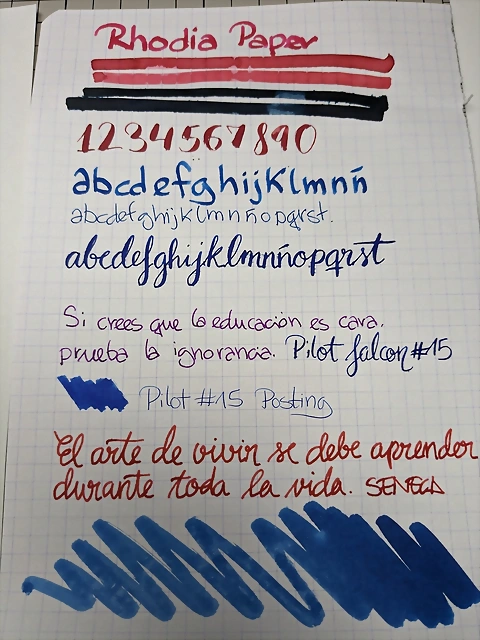 Rhodia Paper
1234567890
abcdefghijklmnñ
abcdefghijklmnñopqrst.
abcdefghijklmnñopqrst
Si crees que la educación es cara,
prueba la ignorancia. Pilot falcon #15
Pilot #15 Posting
El arte de vivir se debe aprender
durante toda la vida. SENECA